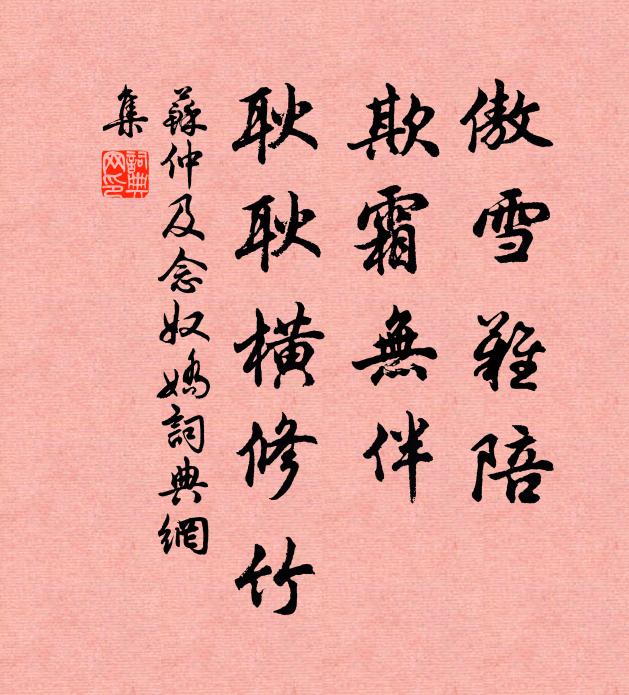 傲雪難陪
欺霜無伴
耿耿橫修竹
蘇仲及念奴嬌詞典網
集
詞典
网印